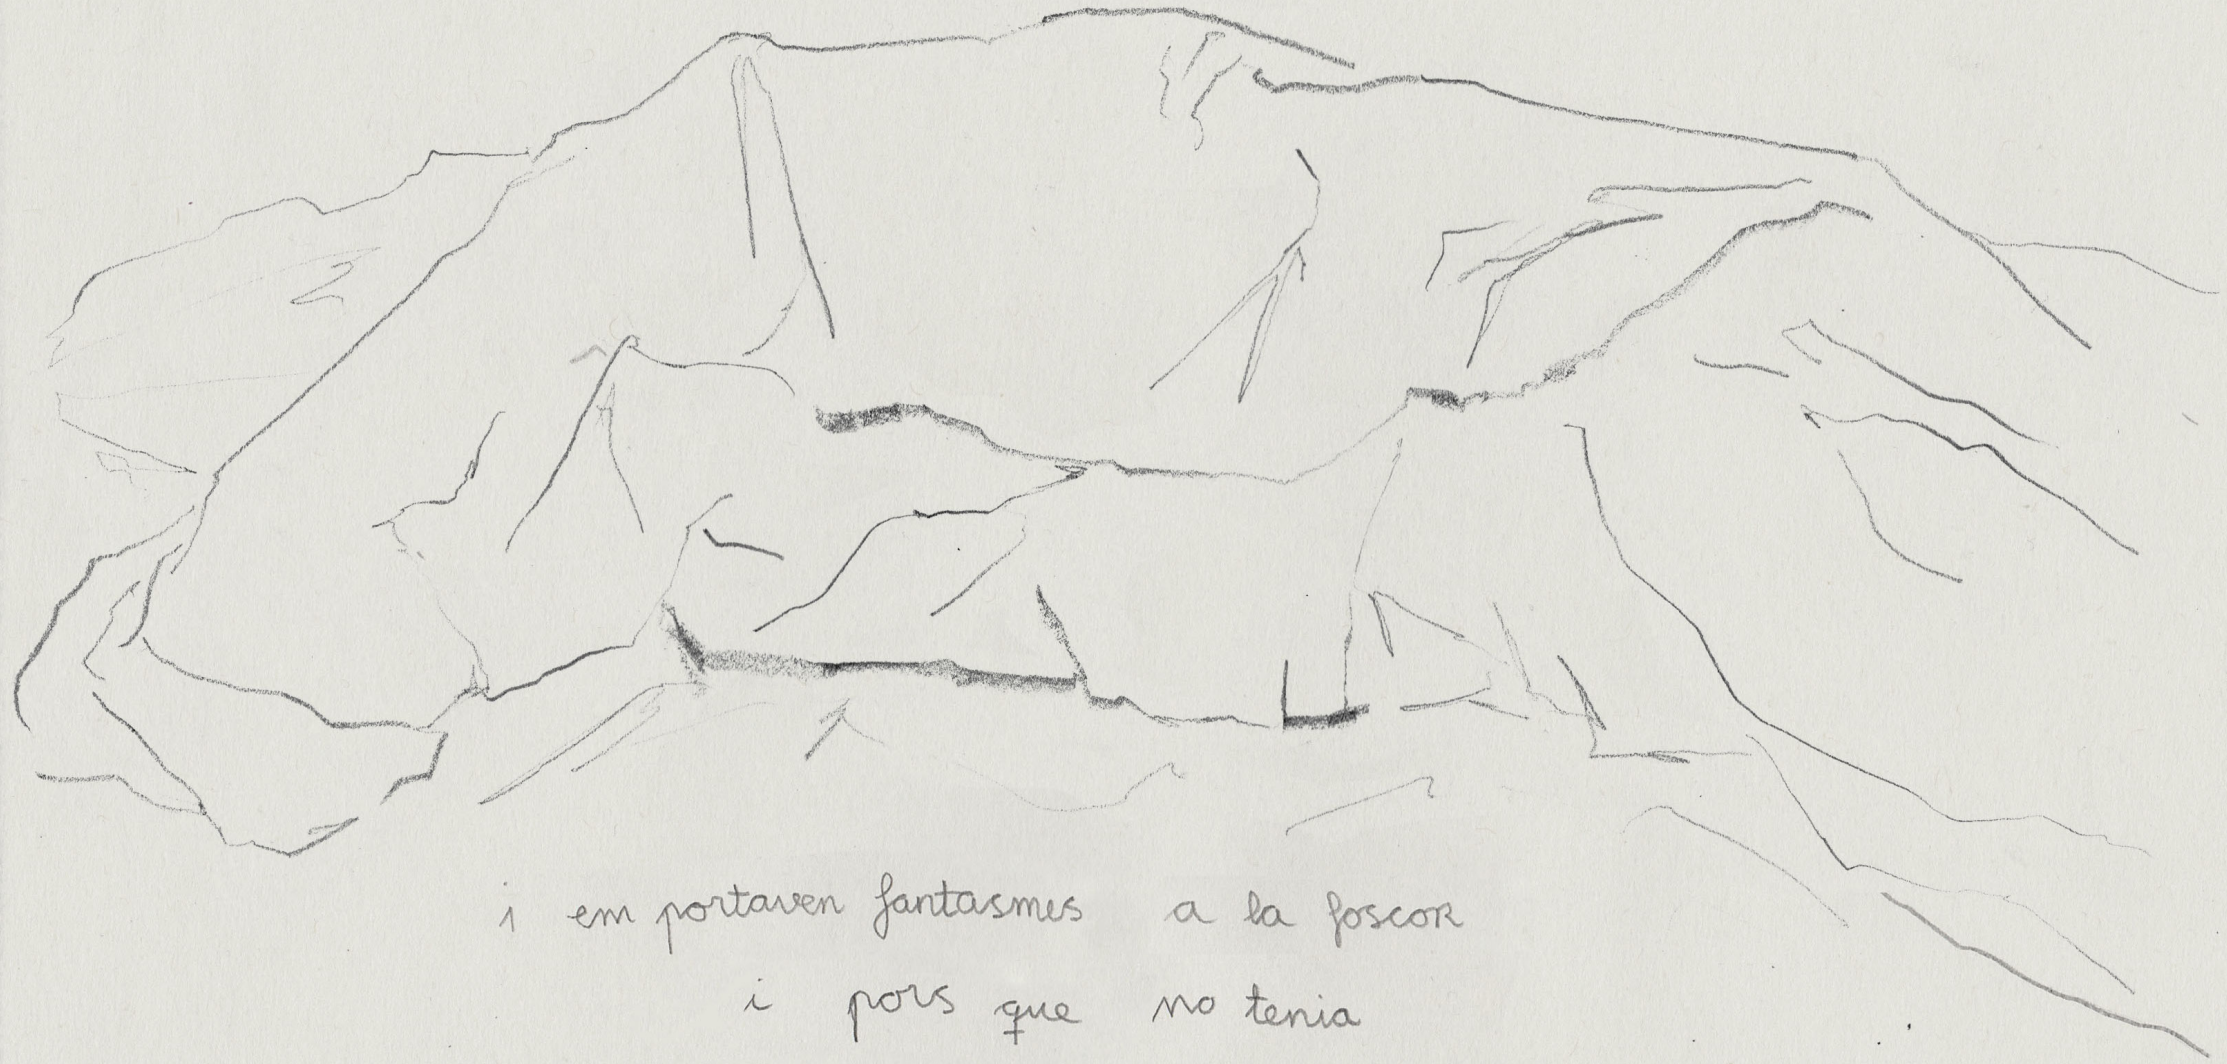 i em portaven fantasmes a la foscor
i pors que no tenia